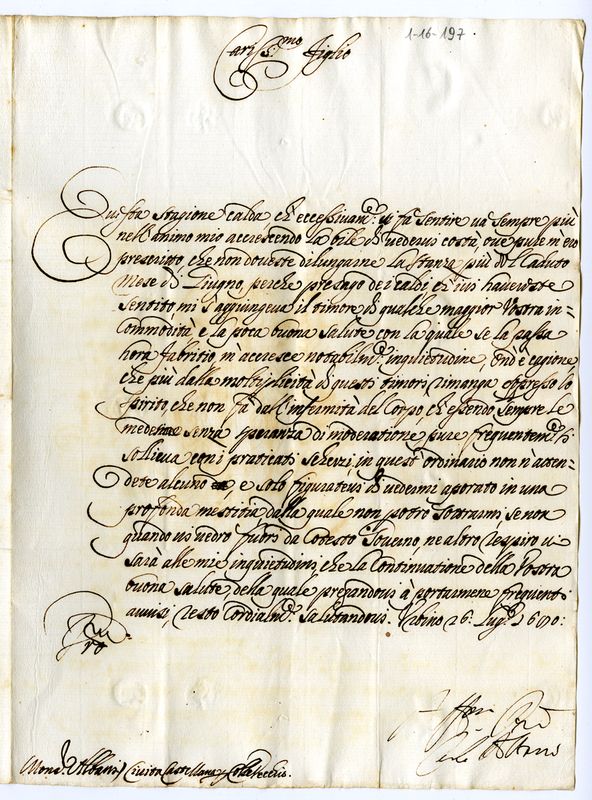 1-16-197
Cariss.mo Figlio
Questa stagione calda ch'eccessivam.e si fa sentire và sempre più
nell'animo mio accrescendo la bile di vedervi costà, ove pure m'ero
preservato che non doveste dilungarne la stanza più del Caduto
Mese di Giugno, perche presago dei caldi ch'ivi havereste
sentito mi s'aggiungeva il timore di qualche maggior Vostra in=
commodità e la poca buona salute con la quale se la passa
hora Fabritio, m'accresce notabilm.e inquietitudine, ond'è cagione,
che più dalla moltiplicità di questi timori rimanga oppresso lo
spirito, che non fà dall'infirmità del Corpo, ch'essendo sempre le
medeme senza speranza di moderatione pure frequentem.e si
sollieva con i praticati scherzi, in quest'ordinario non n'atten=
dete alcuno, e solo figuratevi di vedermi aporato in una
profonda mestitia, dalla quale non potrò sottrarmi, se non
quando vi vedrò fuori da cotesto Governo, ne altro respiro vi
sarà alle mie inquietudini, che la Continuatione della Vostra
buona salute della quale pregandovi à portarmene frequenti
avvisi, resto Cordialm.e salutandovi. Urbino 26. Lug.o 1690:
Aff.mo Pad.e
Carlo Albani
Mons.r Albani Civita Castellana p Collevecchio.